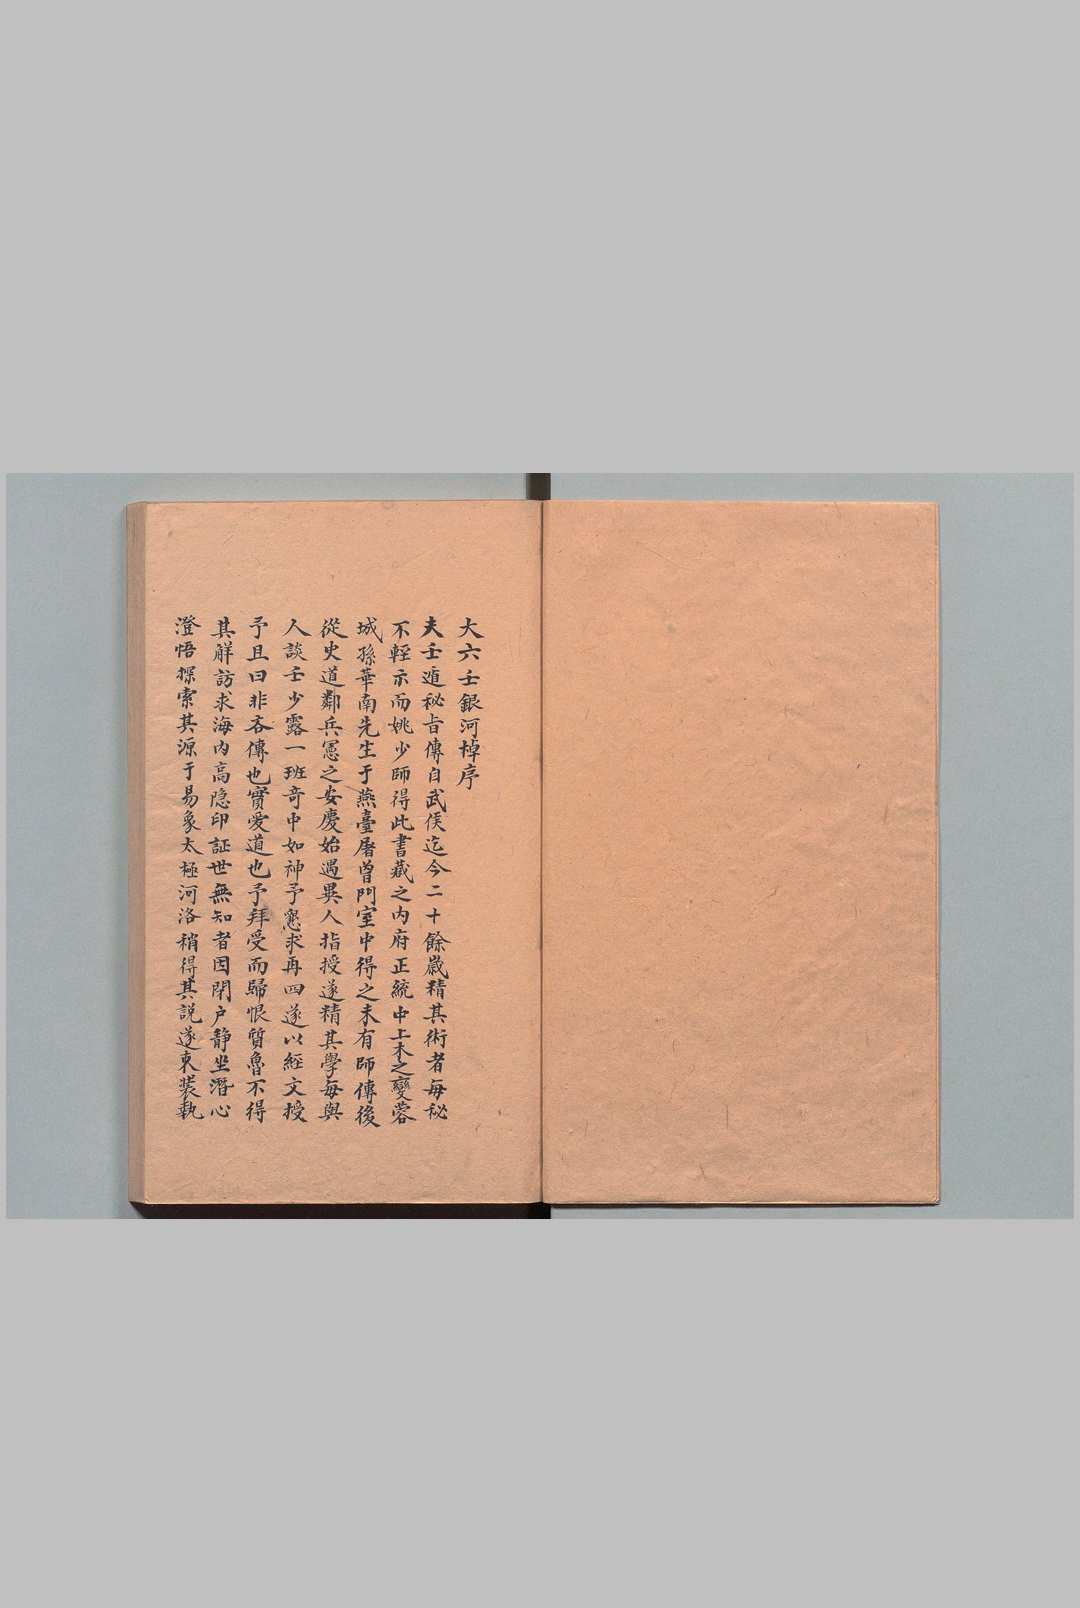 大六壬銀河棹序
夫壬遁秘旨傳自武侯迄今二十餘歲精其術者每秘
不輕示而姚少師得此書藏之内府正統中土木之變蓉
城孫華南先生于燕臺屠曾門室中得之未有師傳後
從史道鄰兵憲之安慶始遇異人指授遂精其學每與
人談壬少露一班奇中如神予懇求再四遂以經文授
予且曰非吝傳也實愛道也予拜受而歸恨質魯不得
其解訪求海内高隐印証世無知者因閉户静坐潛心
澄悟探索其源于易象太極河洛稍得其説遂束裝執